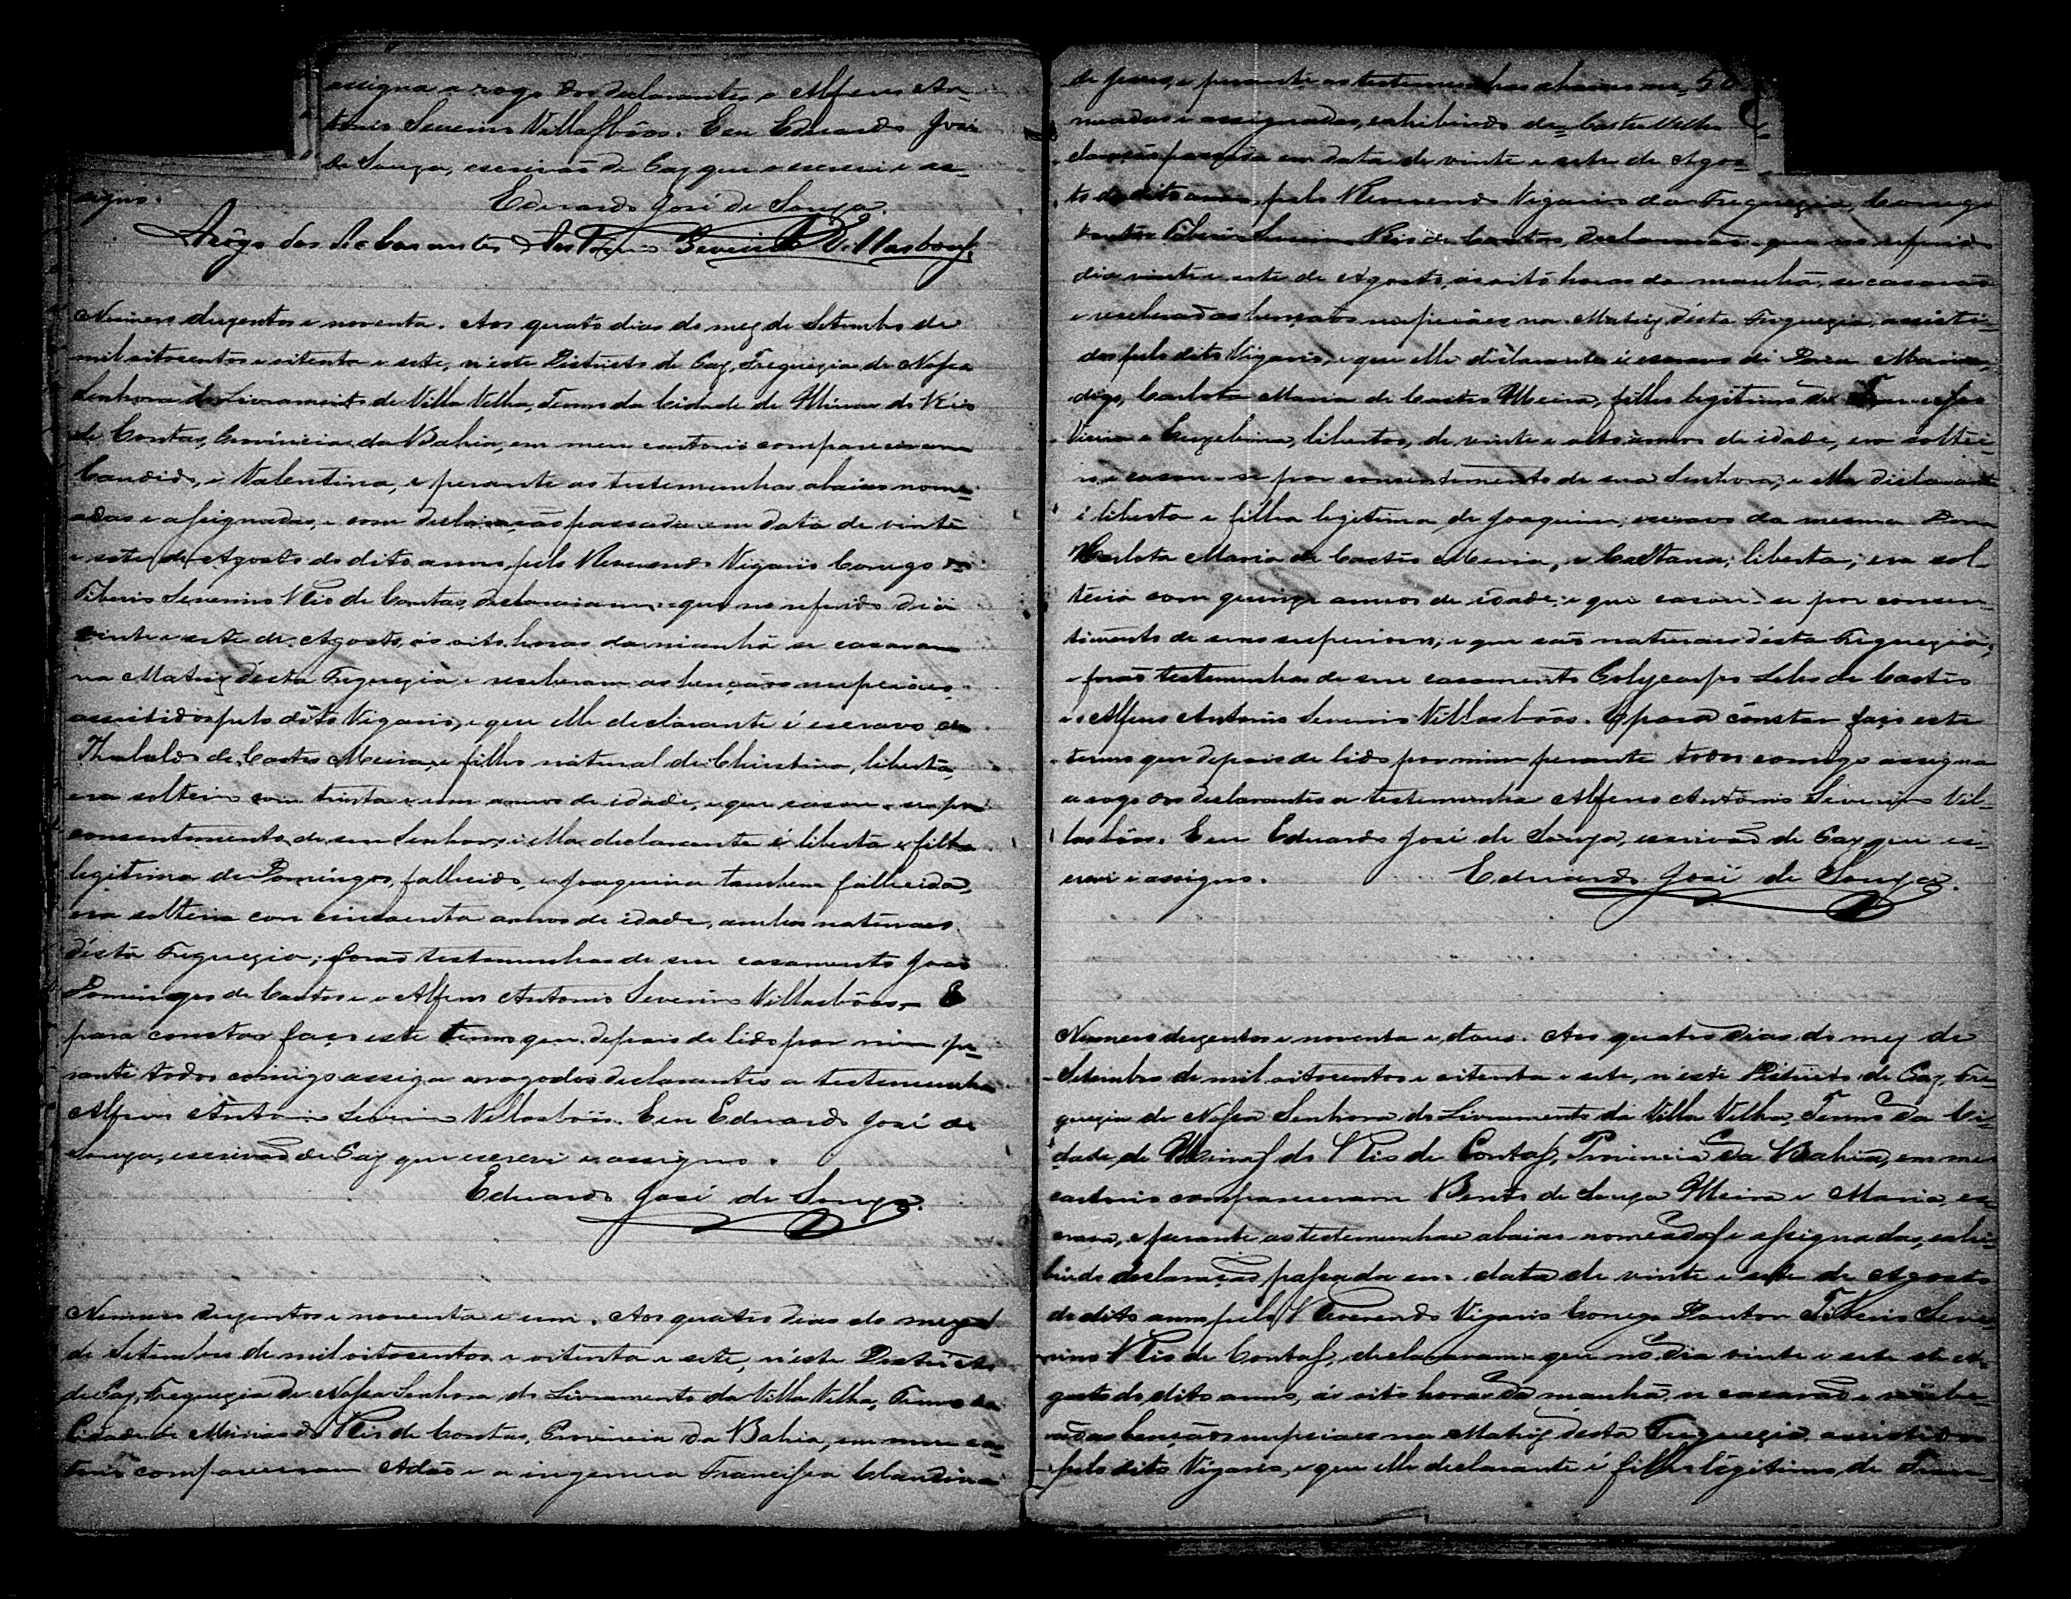 assigna a rogo dos declarantes o Alferes An-
tonio Severino Villasbôas. Eeu Eduardo José
de Souza, escrivão de Paz que o escrevi e as-
signo.
Eduardo José de Souza.
Arôgo dos declarantes Antonio Severino Villasboas.
Numero duzentos e noventa. Aos quatro dias do mez de Setembro de
mil oitocentos e oitenta e sete, n'este Districto de Paz, Freguezia de Nossa
Senhora do Livramento de Villa Velha, Termo da Cidade de Minas do Rio
de Contas, Provincia da Bahia, em meu cartorio compareceram
Candido, e Valentina, e perante as testemunhas abaixo nome-
adas e assignadas, e com declaração passada em data de vinte
e sete de Agosto do dito anno, pelo Reverendo Vigario Conego
Tiberio Severino Rio de Contas, declararam: que no referido dia
vinte e sete de Agosto, ás oito horas da manhã se casaram
na Matriz désta Freguezia e receberam as bençãos nupciaes,
assistidos pelo dito Vigario, e que elle declarante é escravo de
Theobaldo de Castro Meira, e filho natural de Christina, liberta,
era solteiro com trinta e um annos de idade, e que casou-se por
consentimento de seu Senhor; e ella declarante é liberta e filha
legitima de Domingos, fallecido, e Joaquina tambem fallecida,
era solteira com cincoenta annos de idade, ambos naturaes
désta Freguezia; forão testemunhas de seu casamento João
Domingos de Castro e o Alferes Antonio Severino Villasbôas. E
para constar faço este termo que depois de lido por mim pe-
rante todos comigo assigna a rogo dos declarantes a testemunha
Alferes Antonio Severino Villasbôas. Eeu Eduardo José de
Souza, escrivão de Paz que escrevi e assigno.
Eduardo José de Souza.
Numero duzentos e noventa e um. Aos quatro dias do mez
de Setembro de mil oitocentos e oitenta e sete, n'este Districto
de Paz, Freguezia de Nossa Senhora do Livramento da Villa Velha, Termo da
Cidade de Minas do Rio de Contas, Provincia da Bahia, em meu car-
torio compareceram Adão e a ingenua Francisca Claudina
de perante as testemunhas abaixo no- 50
meadas e assignadas, exhibindo de-
claração passada em data de vinte e sete de Agos-
to do dito anno, pelo Reverendo Vigario da Freguezia, Conego
Doutor Tiberio Severino Rio de Contas, declararam: que no referido
dia vinte e sete de Agosto, ás oito horas da manhã, se casarão
e receberão as bençãos nupciaes na Matriz désta Freguezia, assisti-
dos pelo dito Vigario, e que elle declarante é escravo de Dona Maria,
digo, Carlota Maria de Castro Meira, filho legitimo de
Vieira e Euzebina, libertos, de vinte e oito annos de idade, era soltei-
ro e casou-se por consentimento de sua Senhora; e ella declarante
é liberta e filha legitima de Joaquim, escravo da mesma Dona
Carlota Maria de Castro Meira, e Caetana, liberta; era sol-
teira com quinze annos de idade; e que casou-se por consen-
timento de seus superiores; e que são naturaes désta Freguezia;
forão testemunhas de seu casamento Polycarpo Lobo de Castro
e o Alferes Antonio Severino Villasbôas. E para constar faço este
termo que depois de lido por mim perante todos comigo assigna
a rogo dos declarantes a testemunha Alferes Antonio Severino Vil-
lasbôas. Eeu Eduardo José de Souza, escrivão de Paz que es-
crevi e assigno. Eduardo José de Souza.
Numero duzentos e noventa e dous. Aos quatro dias do mez de
Setembro de mil oitocentos e oitenta e sete, n'este Districto de Paz, Fre-
guezia de Nossa Senhora do Livramento da Villa Velha, Termo da Ci-
dade de Minas do Rio de Contas, Provincia da Bahia, em meu
cartorio compareceram Bento de Souza Meira e Maria, es-
crava, e perante as testemunhas abaixo nomeadas e assignadas, exhi-
bindo declaração passada em data de vinte e sete de Agosto
do dito anno pelo Reverendo Vigario Conego Doutor Tiberio Seve-
rino Rio de Contas, declararam: que no dia vinte e sete de A-
gosto do dito anno, ás oito horas da manhã, se casarão e recebe-
rão as bençãos nupciaes na Matriz desta Freguezia, assistidos
pelo dito Vigario, e que elle declarante é filho legitimo de Fran-